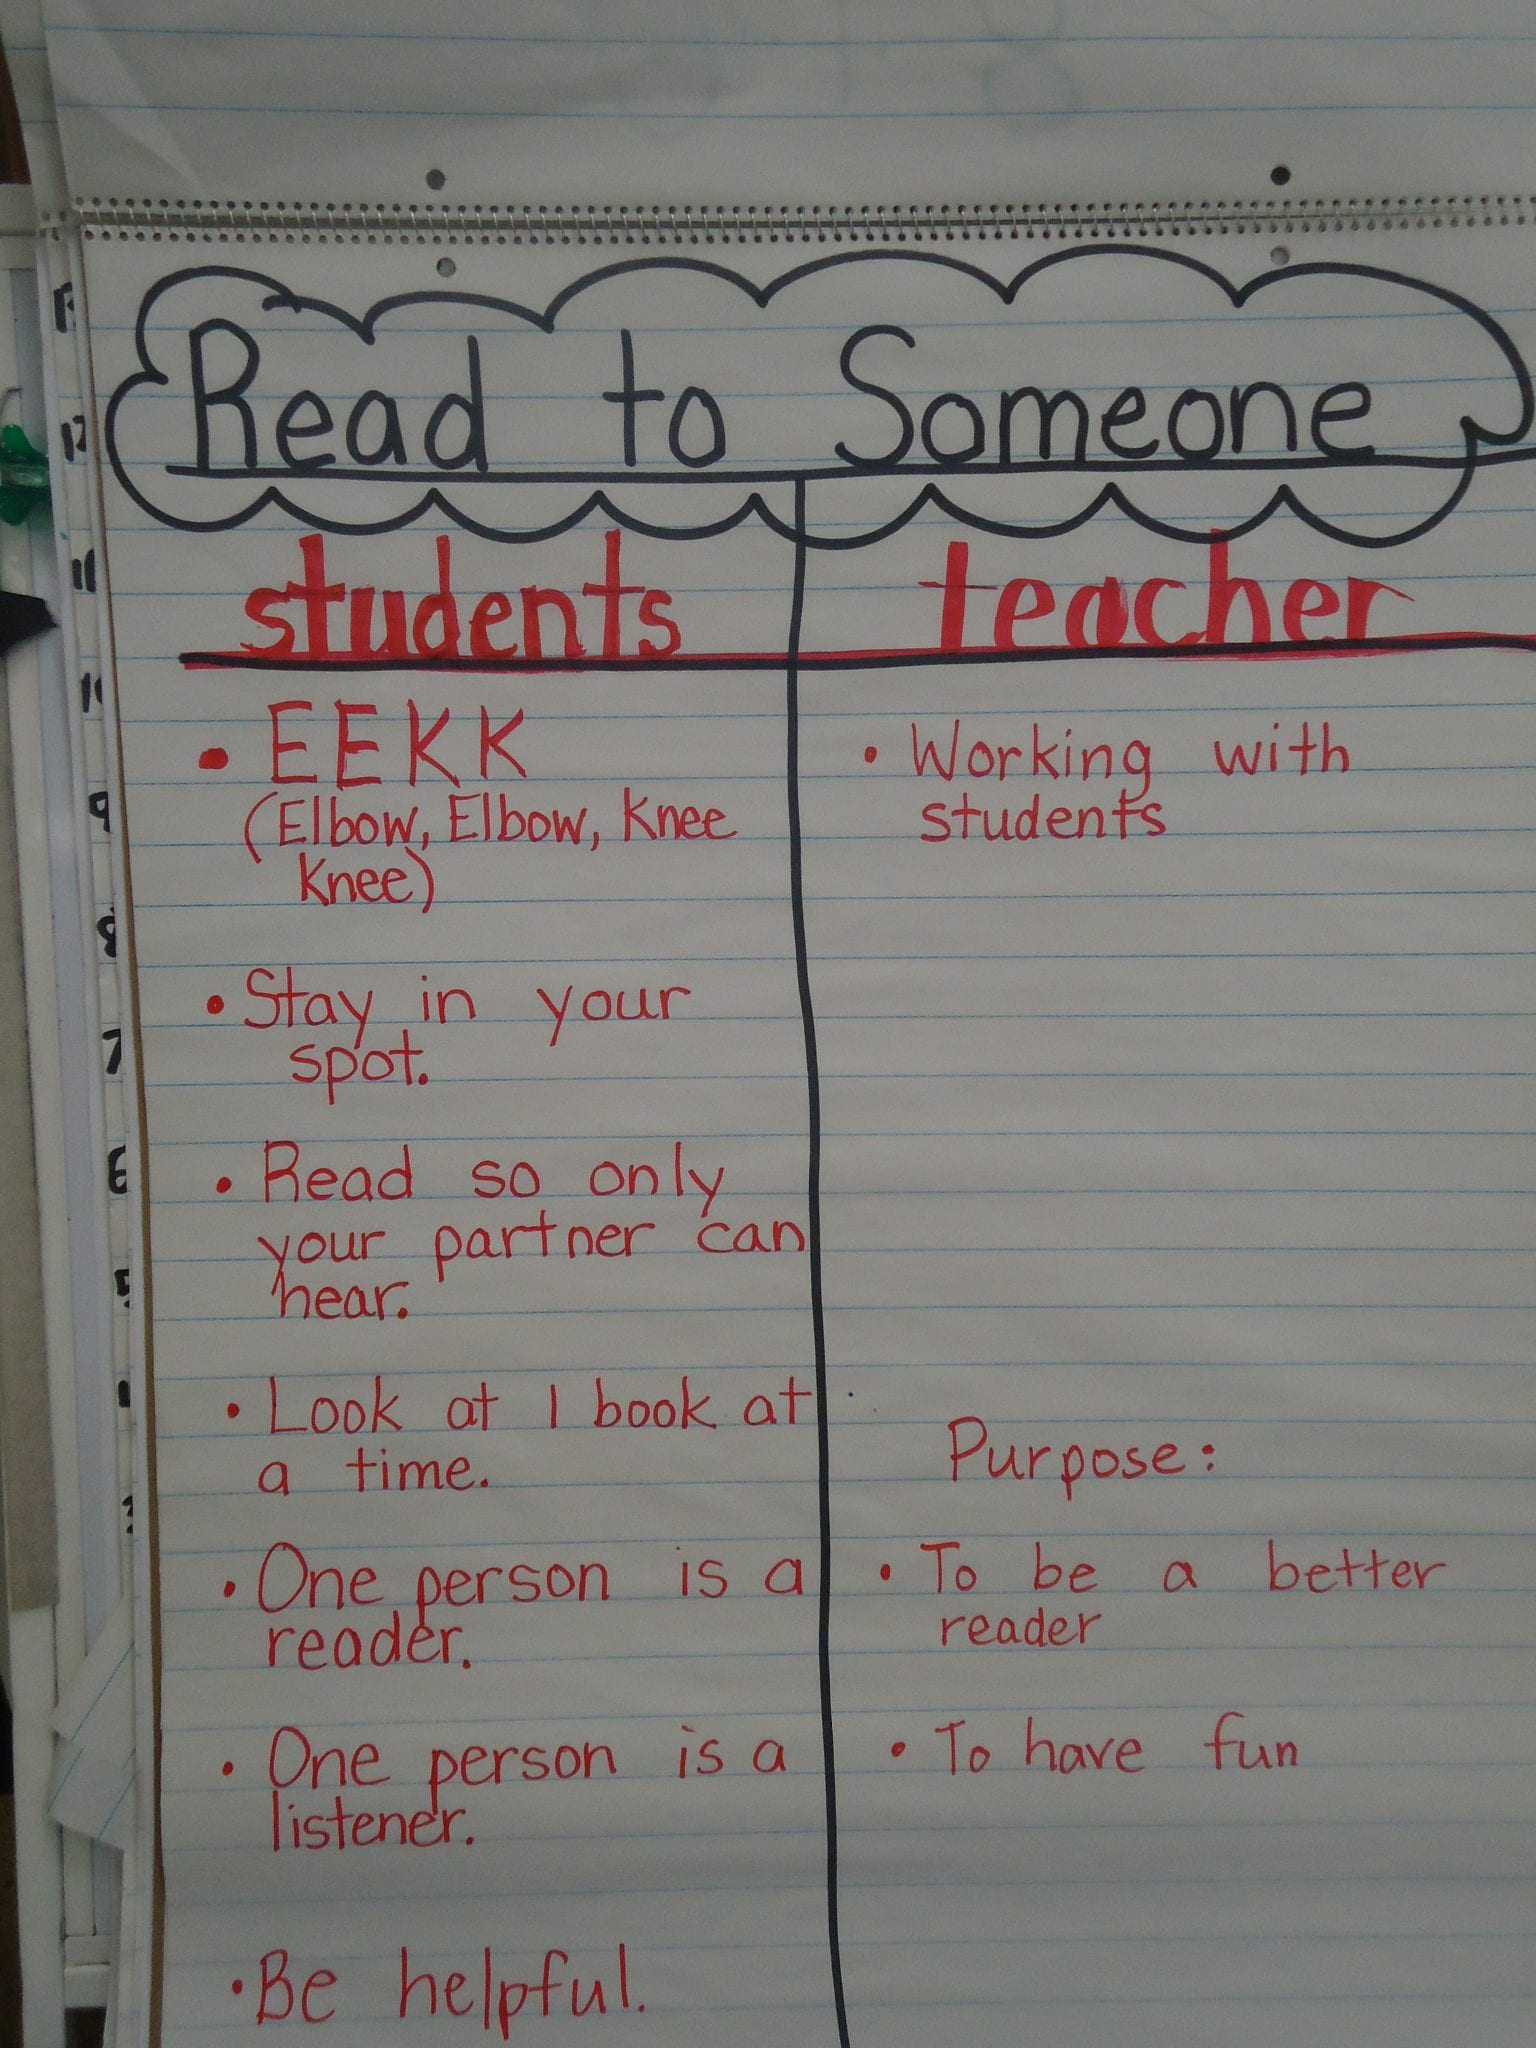 Read to Someone
students
• EEKK
(Elbow, Elbow, Knee
Knee)
• Stay in your
spot.
• Read so only
your partner can
hear.
• Look at 1 book at
a time.
• One person is a
reader.
• One person is a
listener.
• Be helpful.
teacher
• Working with
students
Purpose:
• To be a better
reader
• To have fun
12
11
9
8
7
6
5